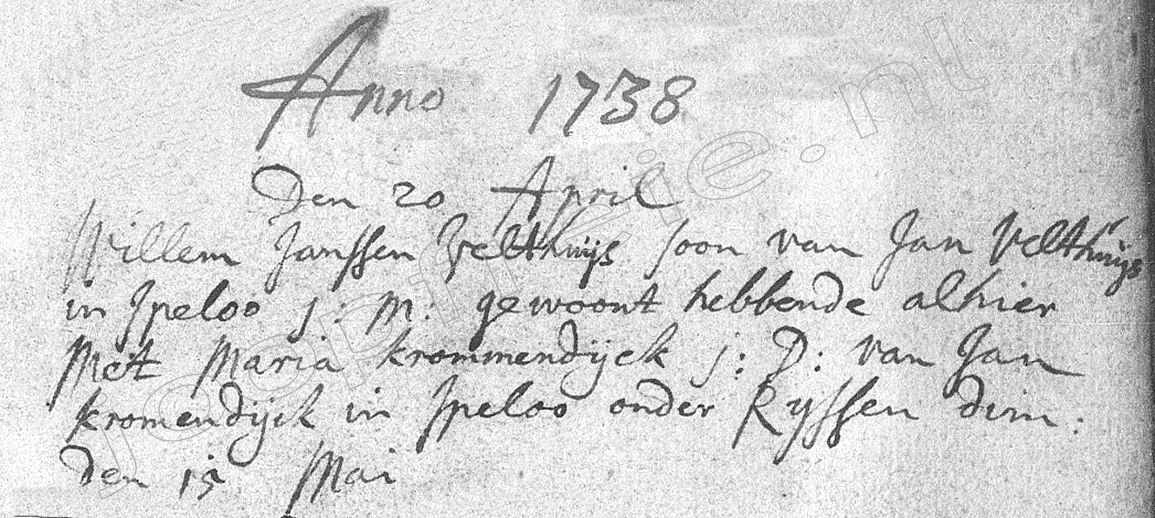 Anno 1738
Den 20 April
Willem Janssen Velthuijs soon van Jan Velthuijs
in Ipeloo j: m: gewoont hebbende alhier
Met Maria krommendijck j: D: van Jan
kromendijck in Ipeloo onder Ryssen dim:
den 15 Mai